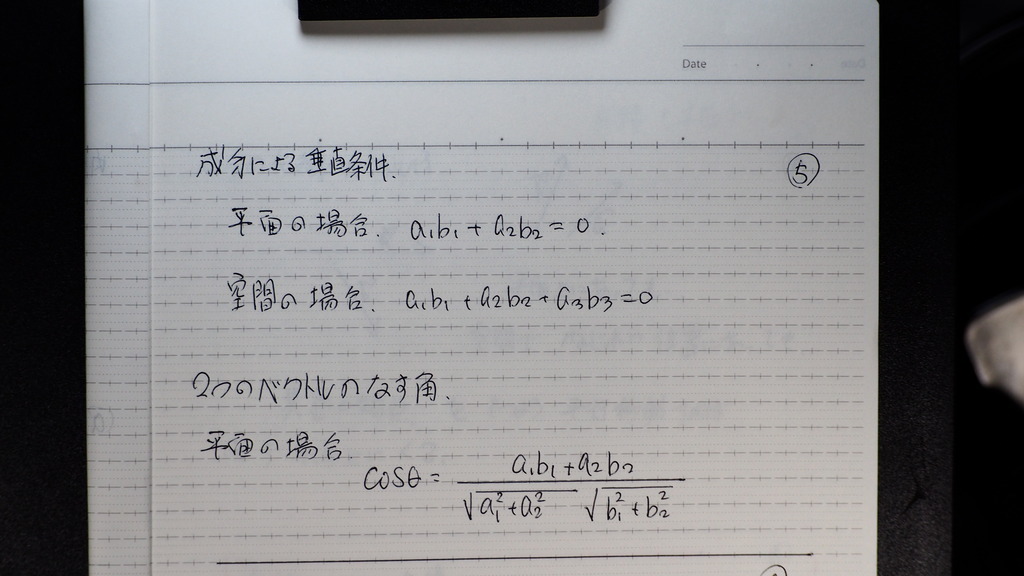 Date
成分による垂直条件.
⑤
平面の場合. a₁b₁ + a₂b₂ = 0.
空間の場合. a₁b₁ + a₂b₂ + a₃b₃ = 0
2つのベクトルのなす角.
平面の場合
cosθ = (a₁b₁ + a₂b₂) / (√(a₁² + a₂²) √(b₁² + b₂²))